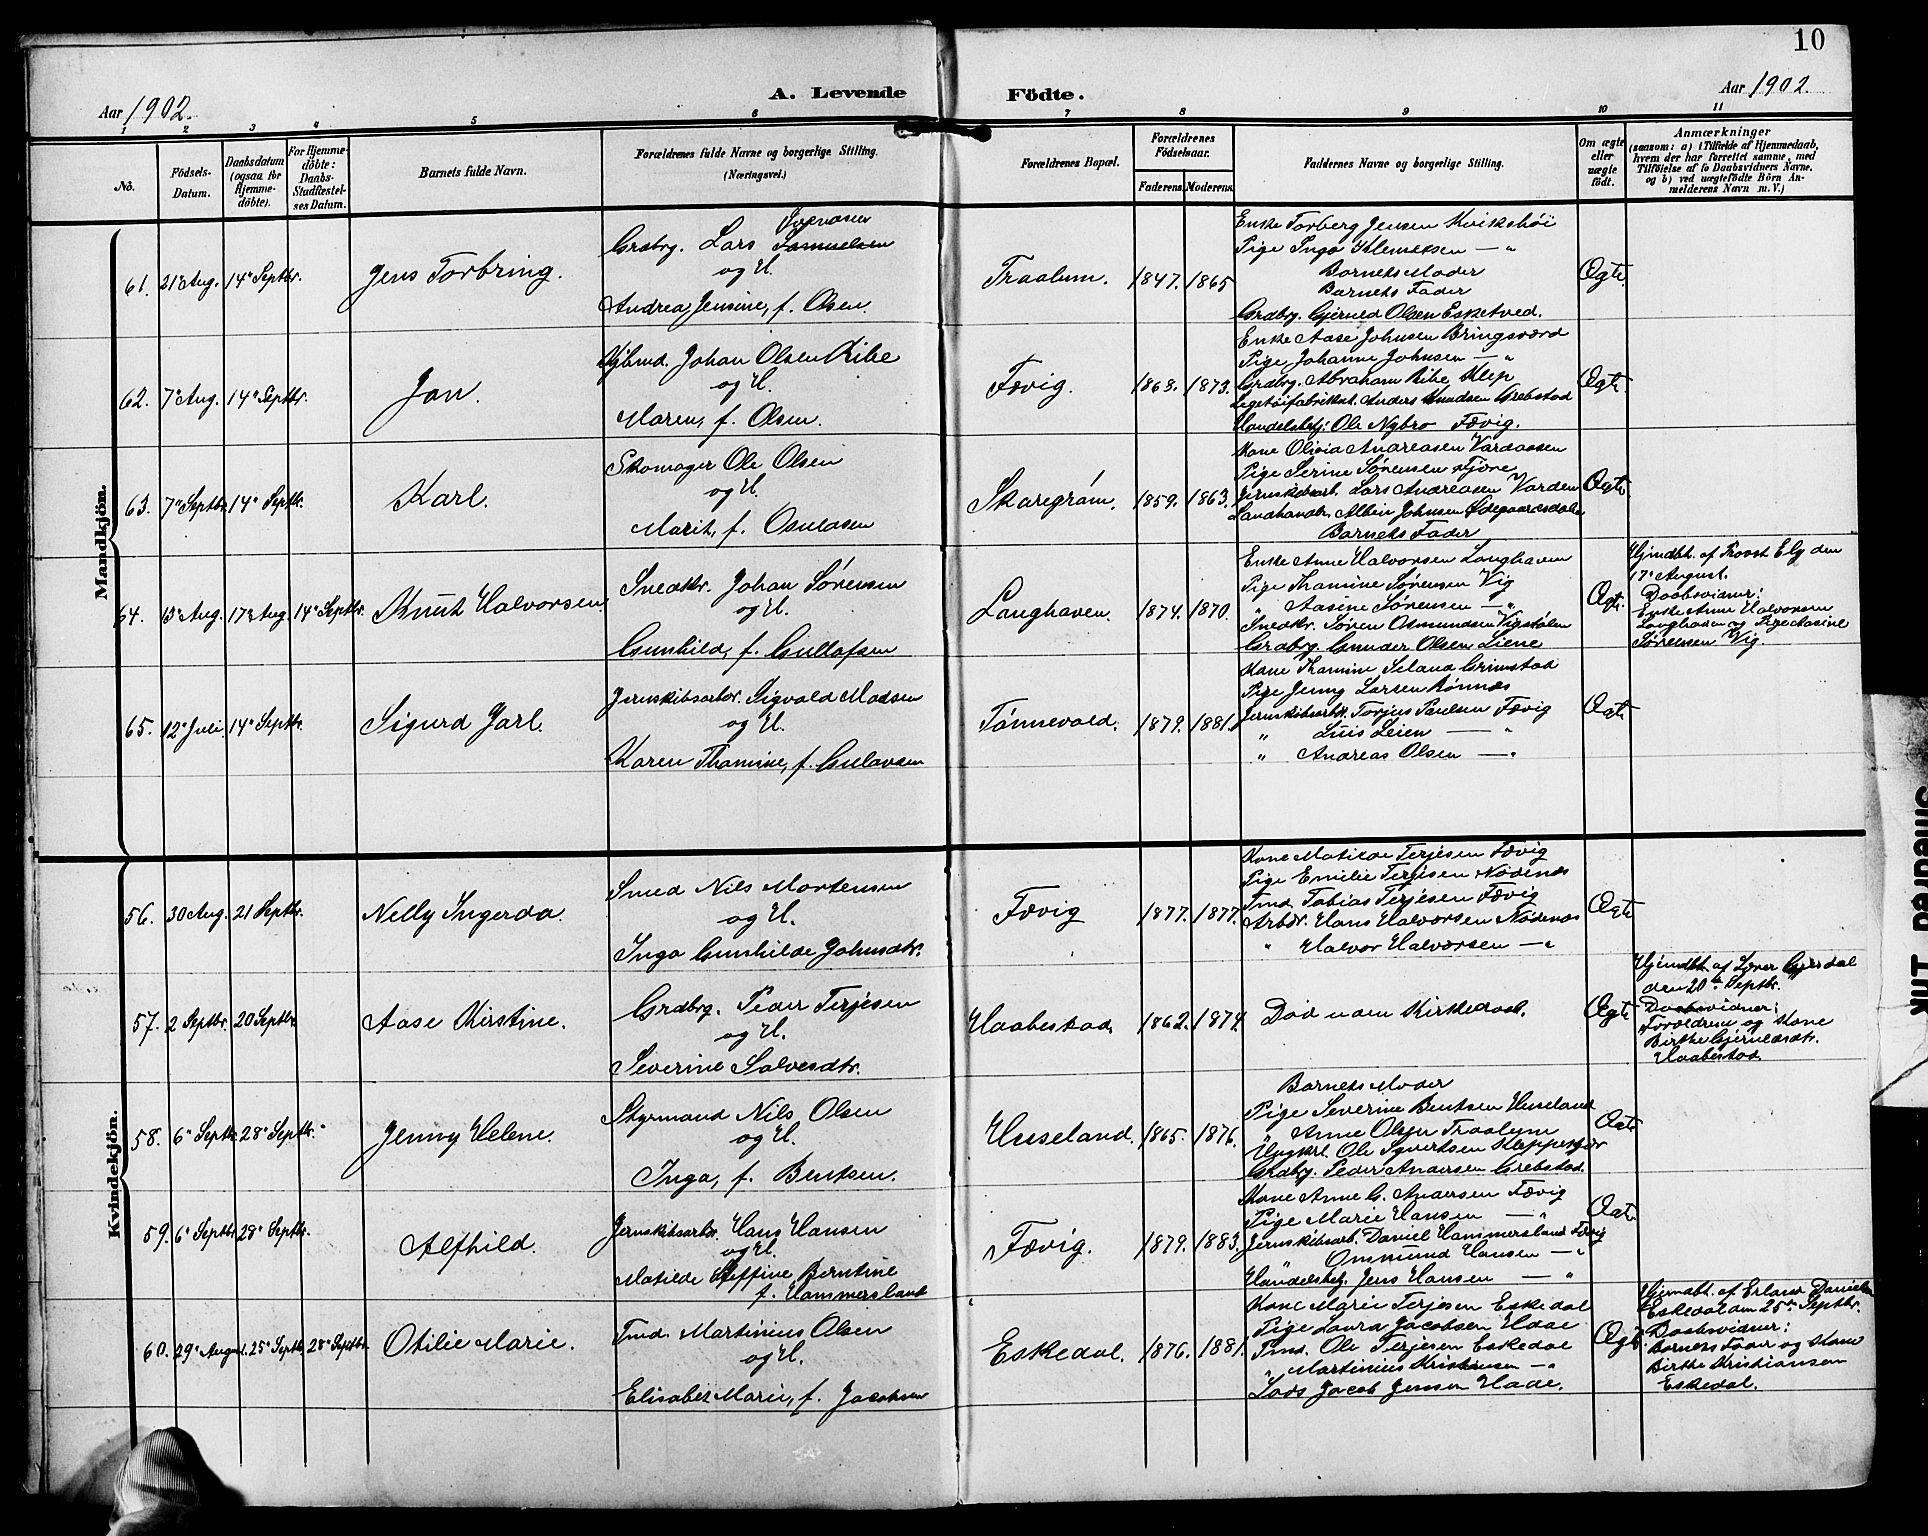 10
Aar 1902.
A. Levende Födte.
Aar 1902.
1 2 3 4 5 6 7 8 9 10 11
No.
Födsels-Datum.
Daabsdatum (ogsaa for Hjemme-döbte).
For Hjemme-döbte: Daabs-Stadfæstel-ses Datum.
Barnets fulde Navn.
Forældrenes fulde Navne og borgerlige Stilling.
(Næringsvei.)
Forældrenes Bopæl.
Forældrenes Födselsaar.
Faderens. Moderens.
Faddernes Navne og borgerlige Stilling.
Om ægte eller uægte födt.
Anmærkninger
(saasom: a) i Tilfælde af Hjemmedaab, hvem der har forrettet samme, med Tilföielse af to Daabsvidners Navne, og b) ved uægtefödte Börn An-melderens Navn m. V.)
Mandkjön.
61. 21de Aug. 14de Septbr. Jens Torbring.
Grdbrg. Lars Samuelsen
og H.
Andrea Jensine, f. Olsen.
Traalum. 1847. 1865
Enke Torberg Jensen Kvikshöi
Pige Inga Klemetsen — "
Barnets Moder
Barnets Fader
Grdbrg. Gjeruld Olsen Esketved.
Ægte.
62. 7de Aug. 14de Septbr. Jon.
Johan Olsen Ribe
og H.
Maren, f. Olsen.
Fævig. 1868. 1873.
Enke Aase Johnsen Bringsværd
Pige Johanne Johnsen — "
Grdbrg. Abraham Ribe Klep
Legetöifabrikkt. Anders Knudsen Grebstad
Handelsbetj. Ole Nybro Fævig.
Ægte
63. 7de Septbr. 14de Septbr. Karl.
Skomager Ole Olsen
og H.
Marit, f. Osuldsen
Skaregröm. 1859. 1863.
Kone Olivia Andreasen Vardaasen
Pige Serine Sørensen Fjære
Jernskibsarb. Lars Andreasen Varden
Landhandlr. Albin Johnsen Ødegaardsdalen
Barnets Fader
Ægte
64. 13de Aug. 17de Aug. 14de Septbr. Knut Halvorsen
Snedkr. Johan Sørensen
og H.
Gunhild, f. Gullofsen
Langhaven. 1874. 1870.
Enke Anne Halvorsen Langhaven
Pige Thamine Sørensen Vig
" Aasine Sørensen — "
Snedkr. Søren Osmundsen Vigstølen
Grdbrg. Gunder Olsen Liene
Ægte.
Hjmdbt. af Provst Elg den
17de August.
Daabsvidner:
Enke Anne Halvorsen
Langhaven og Pige Aasine
Sørensen Vig.
65. 12te Juli. 14de Septbr. Sigurd Jarl.
Jernskibsarbdr. Sigvald Madsen
og H.
Karen Thamine, f. Gulavsen
Tønnevold. 1879. 1881.
Kone Thamine Seland Grimstad
Pige Jenny Larsen Rønnæs
Jernskibsarbdr. Torjus Paulsen Fævig
" Luis Leien — "
" Andreas Olsen — "
Ægte
Kvindekjön.
56. 30 Aug. 21 Septbr. Nelly Ingerda.
Smed Nils Mortensen
og H.
Inga Gunhilde Johnsdtr.
Fævig 1877. 1877.
Kone Matilde Terjesen Fævig
Pige Emilie Terjesen Nødenes
Tmd. Tobias Terjesen Fævig
Arbdr. Hans Halvorsen Nødenes
" Halvor Halvorsen — "
Ægte
57. 2 Septbr. 20 Septbr. Aase Kirstine.
Grdbrg. Peder Terjesen
og H.
Severine Salvesdtr.
Haabestad. 1862. 1874.
Död uden Kirkedaab.
Ægte
Hjemdbt. af Lærer Gjersdal
den 20de Septbr.
Daabsvidner:
Forældrene og Kone
Birthe Gjeruldsdtr.
Haabestad
58. 6te Septbr. 28de Septbr. Jenny Helene.
Styrmand Nils Olsen
og H.
Inga, f. Bentsen.
Hesseland. 1865. 1876.
Barnets Moder
Pige Severine Bentsen Hesseland
" Anne Olsen Traalum
Ungkrl. Ole Syvertsen
Grdbrg. Peder Andersen Grebstad.
Ægte
59. 6te Septbr. 28de Septbr. Alfhild.
Jernskibsarbdr. Hans Hansen
og H.
Matilde Steffine Berntine
f. Hammersland
Fævig. 1879. 1883.
Kone Anne G. Andersen Fævig
Pige Marie Hansen — "
Jernskibsarb. Daniel Hammersland Fævig
" Ommund Hansen — "
Handelsbetj. Jens Hansen — "
Ægte
60. 29de August. 25de Septbr. 28de Septbr. Otilie Marie.
Tmd. Martinius Olsen
og H.
Elisabet Marie, f. Jacobsen
Eskedal. 1876. 1881.
Kone Marie Terjesen Eskedal
Pige Laura Jacobsen Haae
Tmd. Ole Terjesen Eskedal
" Martinius Kristiansen — "
Lods Jacob Jensen Haae.
Ægte
Hjemdbt. af Erland Danielsen
Eskedal den 25de Septbr.
Daabsvidner:
Barnets Fader og Kone
Birthe Kristiansen
Eskedal.